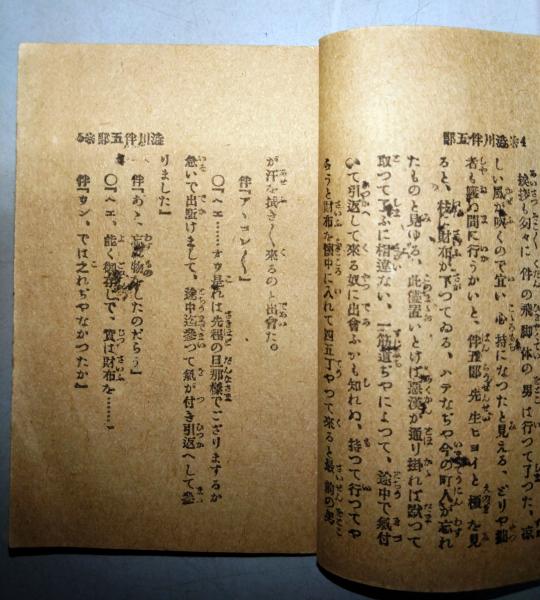 4 澁川伴五郎
挨拶も匆々に件の飛脚体の男は行つて了つた、凉
しい風が吹くので宜い心持になつたと見える、どりや
者も の間に行うかいと、伴五郎先生ヒヨイと榎を見
ると、枝に財布が下つてゐる、ハテなぢや今の町人が忘れ
たものと見ゆる、此儘置いとけば惡漢が通り掛れば默つて
取つて了ふに相違ない、一筋道ぢやによつて、途中で氣付
いて引返して來る奴に出會ふかも知れぬ、持つて行つてや
らうと財布を懷中に入れて四五丁やつて來ると最前の男
澁川伴五郎
が汗を拭き〳〵來るのと出會た。
伴『ア、コレ〳〵』
〇『ヘエ……オウ是れは先程の旦那様でござりまするか
急いで出掛けまして、途中迄參つて氣が付き引返へして參
りました』
伴『あゝ、忘れ物をしたのだらう』
〇『ヘエ、能く御存じで、實は財布を……』
伴『ウン、では之れぢやなかつたか』